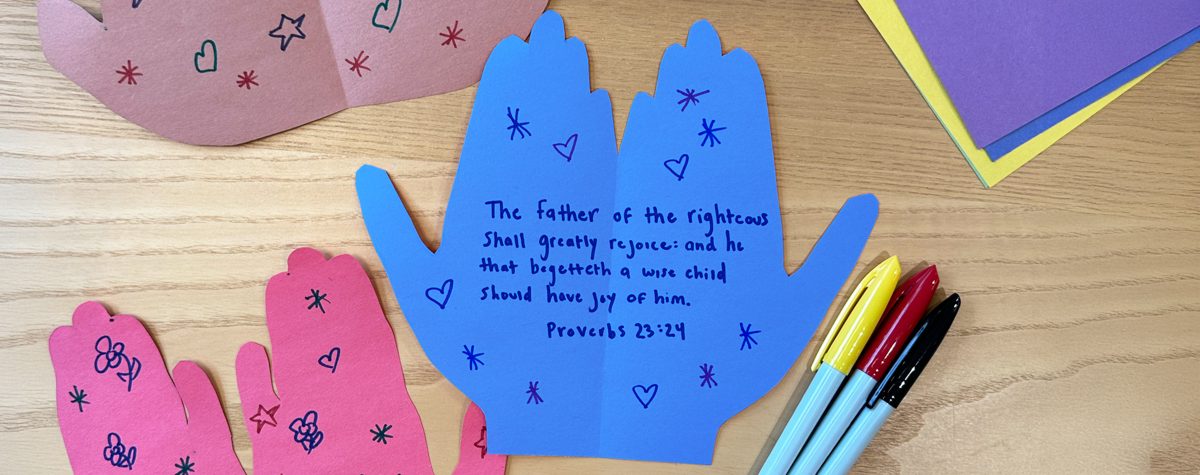 The father of the righteous
shall greatly rejoice: and he
that begetteth a wise child
should have joy of him.
Proverbs 23:24